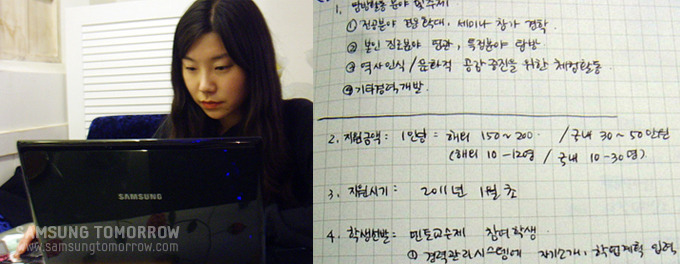 SAMSUNG
SAMSUNG TOMORROW
www.samsungtomorrow.com
1. 탐방활동 분야 및 주제
① 전공분야 전문 확대, 세미나 참가 견학
② 본인 진로분야 연관, 특정분야 탐방
③ 역사인식 / 문화적 공감 증진을 위한 체험활동
④ 기타경력개발
2. 지원금액: 1인당 = 해외 150~200 / 국내 30~50만원
(해외 10-12명 / 국내 10-30명)
3. 지원시기: 2011년 1월 초
4. 학생선발: 멘토교수제 참여학생
① 경력관리시스템에 자기소개, 학업계획 입력